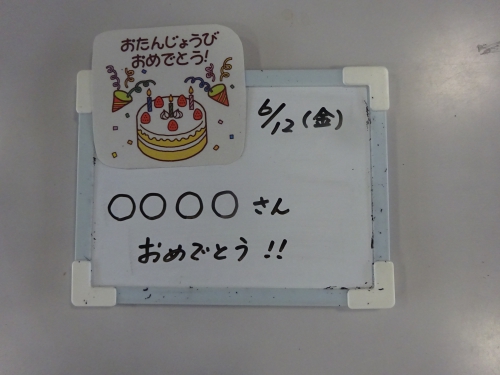 おたんじょうび
おめでとう!
6/12(金)
○○○○さん
おめでとう!!